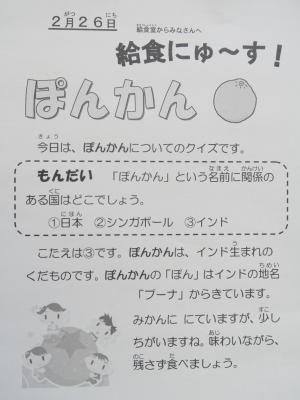 2月26日
給食室からみなさんへ
給食にゅ～す！
ぽんかん
今日は、ぽんかんについてのクイズです。
もんだい 「ぽんかん」という名前に関係の
ある国はどこでしょう。
①日本 ②シンガポール ③インド
こたえは③です。ぽんかんは、インド生まれの
くだものです。ぽんかんの「ぽん」はインドの地名
「プーナ」からきています。
みかんに にていますが、少し
ちがいますね。味わいながら、
残さず食べましょう。